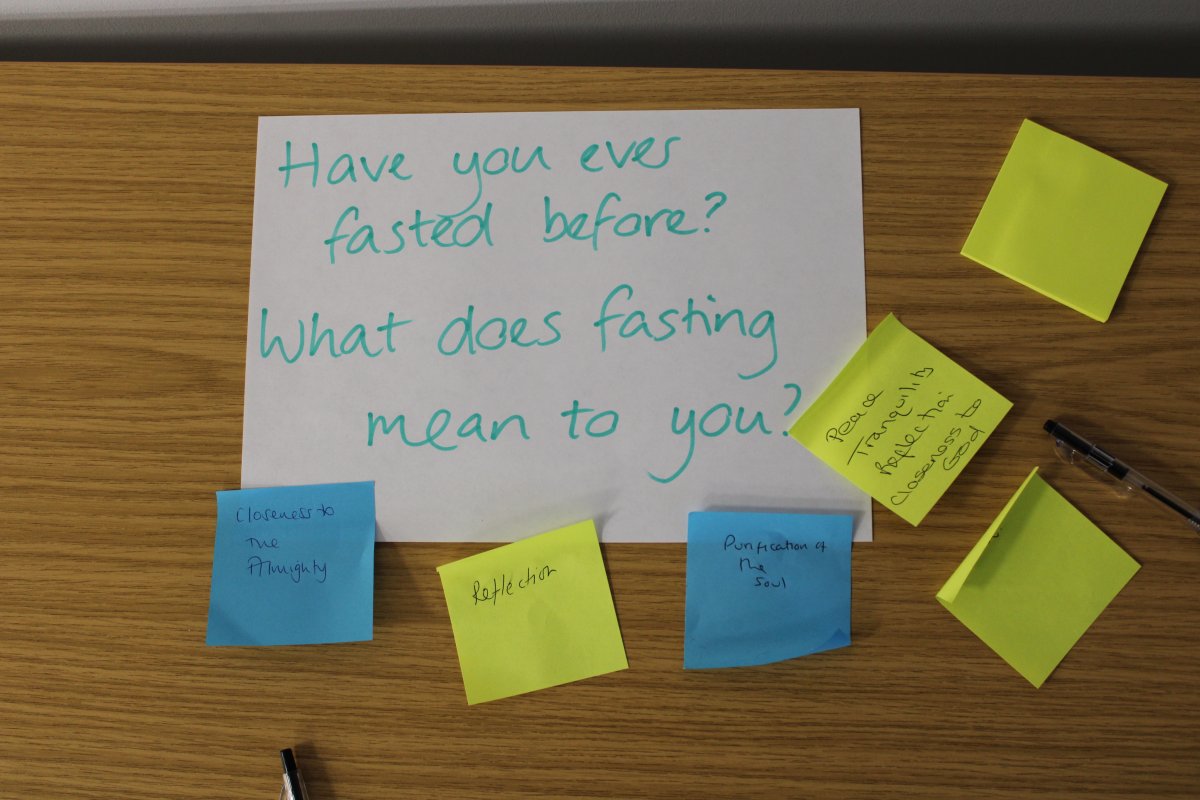 Have you ever
fasted before?
What does fasting
mean to you?
Peace
Tranquility
Reflection
Closeness to
God
Closeness to
The
Almighty
Reflection
Purification of
the
soul